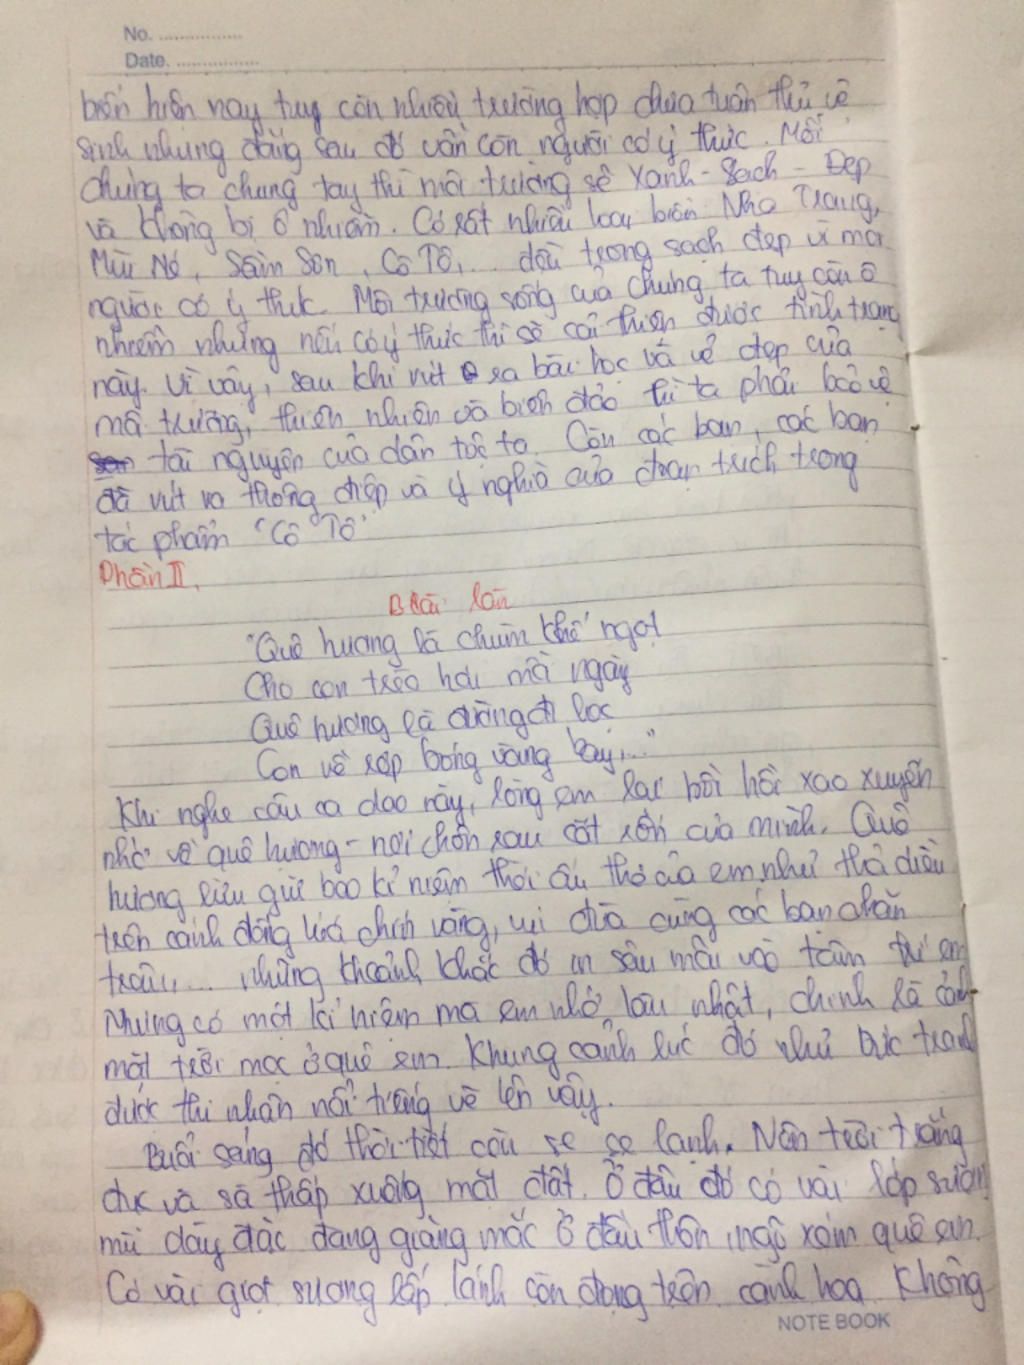 No. ................
Date. ................
biển hiện nay tuy còn nhiều trường hợp chưa tuân thủ vệ
sinh nhưng đằng sau đó vẫn còn người có ý thức. Mỗi
chúng ta chung tay thì môi trường sẽ Xanh - Sạch - Đẹp
và không bị ô nhiễm. Có rất nhiều loại biển Nha Trang,
Mũi Né, Sầm Sơn, Cô Tô,... đều trong sạch đẹp vì mọi
người có ý thức. Môi trường sống của chúng ta tuy còn ô
nhiễm nhưng nếu có ý thức thì sẽ cải thiện được tình trạng
này. Vì vậy, sau khi rút ra bài học về vẻ đẹp của
môi trường, thiên nhiên và biển đảo thì ta phải bảo vệ
tài nguyên của dân tộc ta. Còn các bạn, các bạn
đã rút ra thông điệp và ý nghĩa của đoạn trích trong
tác phẩm "Cô Tô"
Phần II.
Bài làm
"Quê hương là chùm khế ngọt
Cho con trèo hái mỗi ngày
Quê hương là đường đi học
Con về rợp bóng vàng bay,..."
Khi nghe câu ca dao này, lòng em lại bồi hồi xao xuyến
nhớ về quê hương - nơi chôn rau cắt rốn của mình. Quê
hương lưu giữ bao kỉ niệm thời ấu thơ của em như thả diều
trên cánh đồng lúa chín vàng, vui đùa cùng các bạn chăn
trâu,... những khoảnh khắc đó in sâu mãi vào tâm trí em
Nhưng có một kỉ niệm mà em nhớ lâu nhất, chính là cảnh
mặt trời mọc ở quê em. Khung cảnh lúc đó như bức tranh
được thi nhân nổi tiếng vẽ lên vậy.
Buổi sáng đó thời tiết còn se se lạnh. Nền trời trắng
đục và sà thấp xuống mặt đất. Ở đâu đó có vài lớp sương
mù dày đặc đang giăng mắc ở đầu thôn, ngõ xóm quê em.
Có vài giọt sương lấp lánh còn đọng trên cành hoa. Không
NOTE BOOK